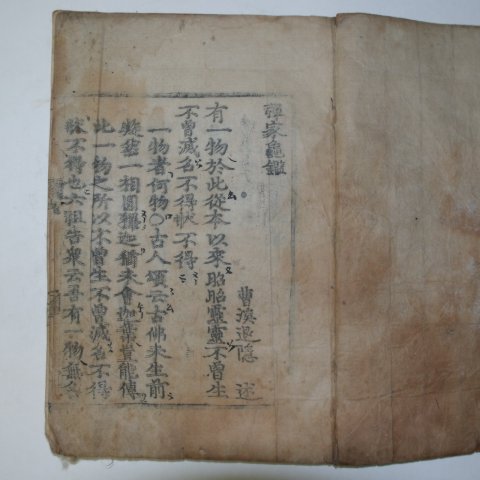 禪家龜鑑
曹溪退隱 述
有一物於此從本以來昭昭靈靈不曾生
不曾滅名不得狀不得
一物者何物〇古人頌云古佛未生前
凝然一相圓釋迦猶未會迦葉豈能傳
此一物之所以不曾生不曾滅名不得
狀不得也六祖告衆云吾有一物無名